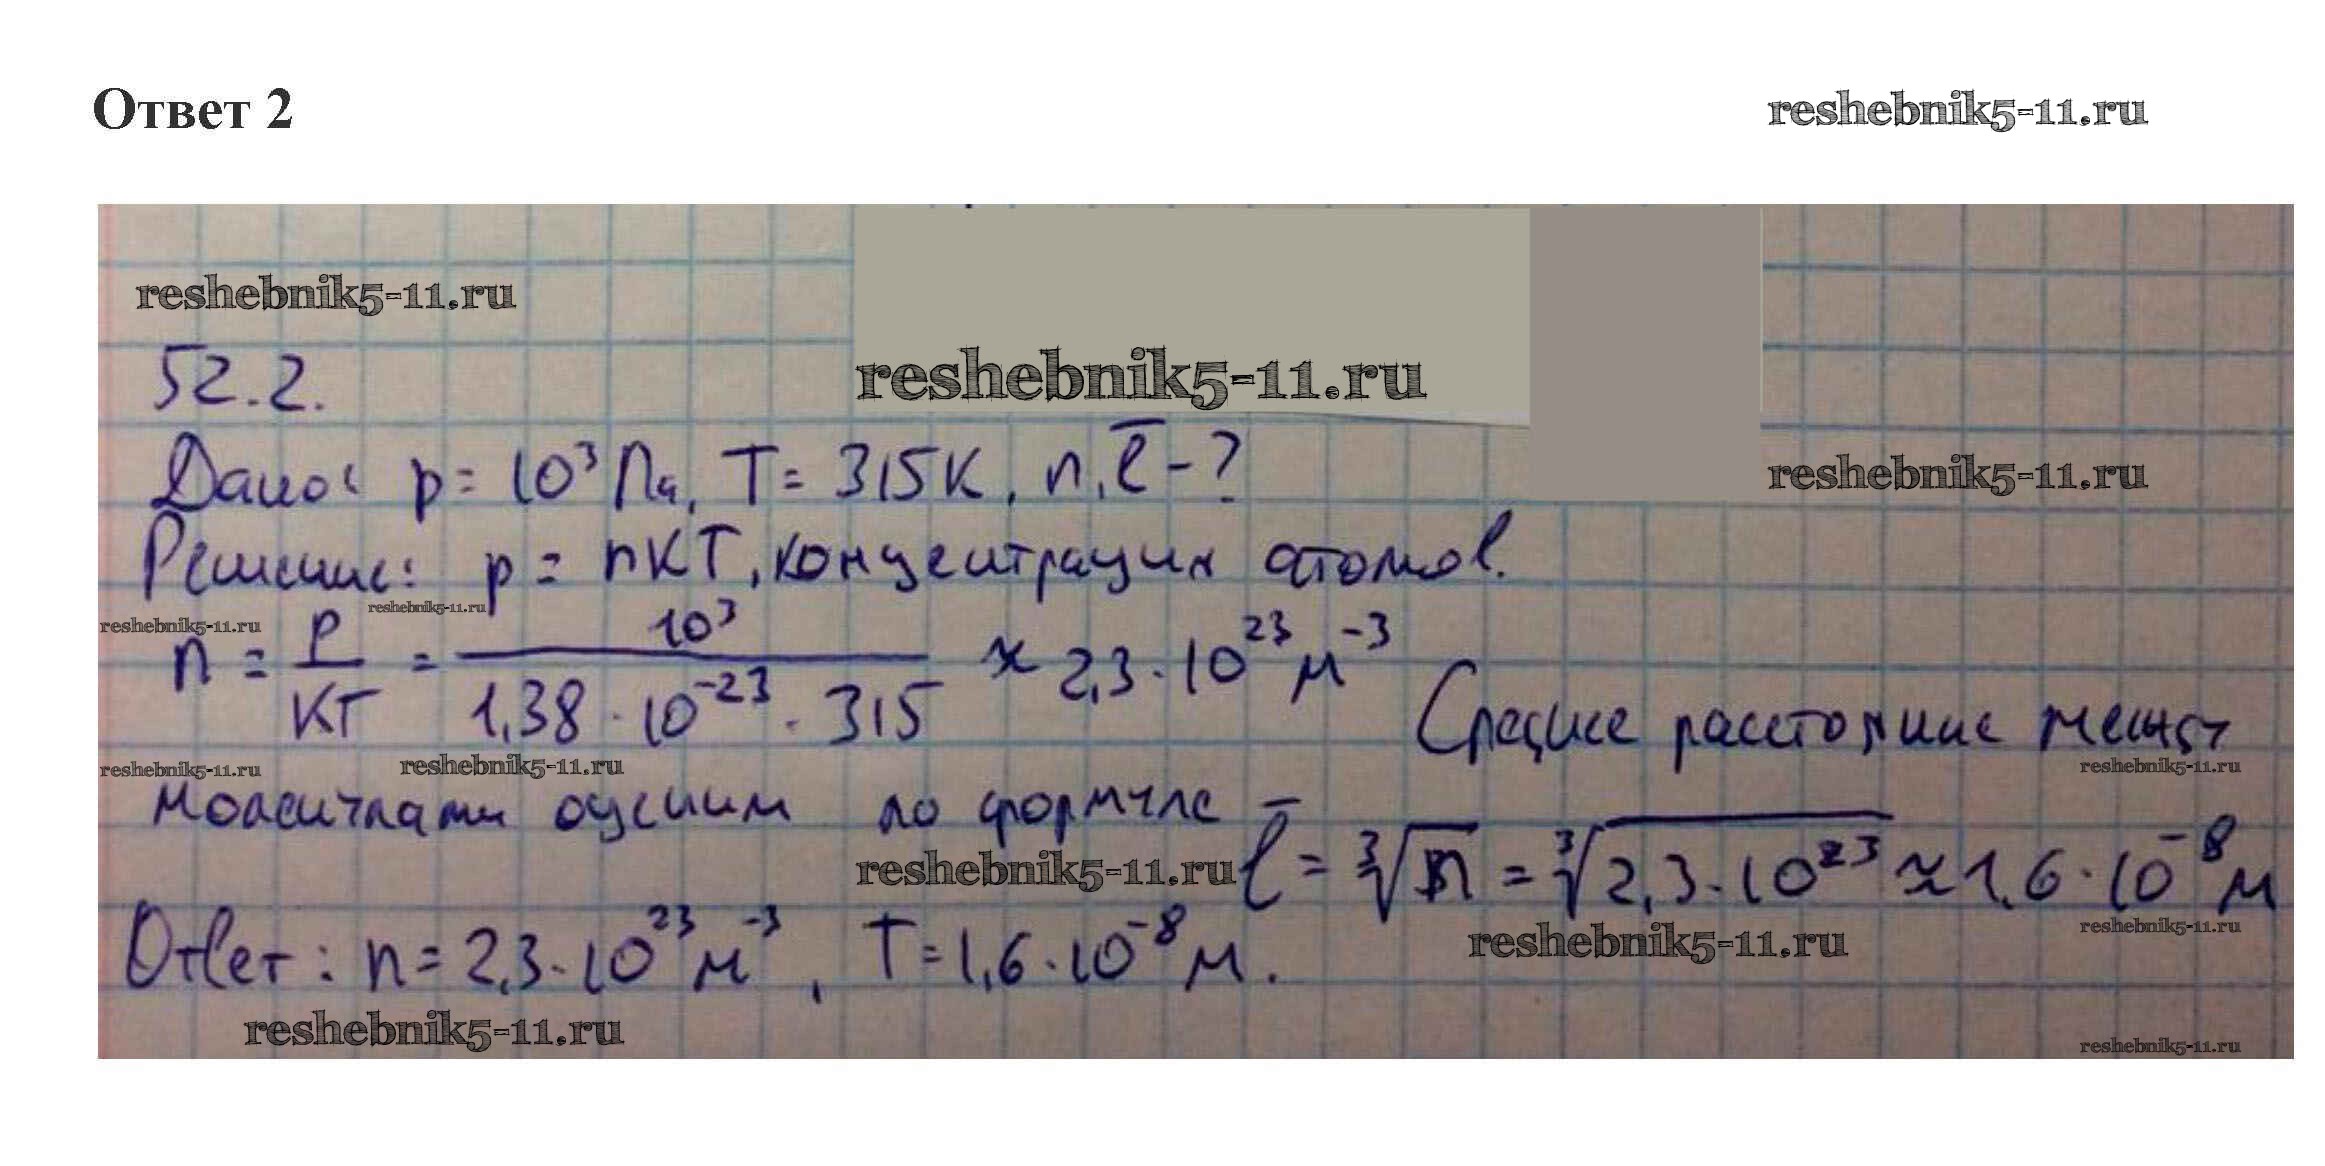 Ответ 2
reshebnik5-11.ru
reshebnik5-11.ru
52.2.
reshebnik5-11.ru
Дано: p = 10³ Па, T = 315К, n, l̅ - ?
reshebnik5-11.ru
Решение: p = nКТ, концентрация атомов.
reshebnik5-11.ru
reshebnik5-11.ru
n = P/КТ = 10³/1,38 · 10⁻²³ · 315 ≈ 2,3 · 10²³ м⁻³
Среднее расстояние между
reshebnik5-11.ru
reshebnik5-11.ru
reshebnik5-11.ru
молекулами оценим по формуле
reshebnik5-11.ru
l̅ = ³√n = ³√2,3 · 10²³ ≈ 1,6 · 10⁻⁸ м
reshebnik5-11.ru
reshebnik5-11.ru
Ответ: n = 2,3 · 10²³ м⁻³, T = 1,6 · 10⁻⁸ м.
reshebnik5-11.ru
reshebnik5-11.ru